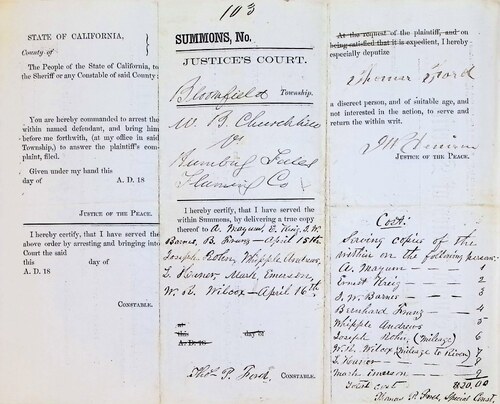 103
STATE OF CALIFORNIA,
County of
The People of the State of California, to
the Sheriff or any Constable of said County:
You are hereby commanded to arrest the
within named defendant, and bring him
before me forthwith, (at my office in said
Township,) to answer the plaintiff's com-
plaint, filed.
Given under my hand this
day of A. D. 18
JUSTICE OF THE PEACE.
I hereby certify, that I have served the
above order by arresting and bringing into
Court the said
this day of
A. D. 18
CONSTABLE.
SUMMONS, No.
JUSTICE'S COURT.
Bloomfield Township.
W. B. Churchill
vs
Fluming Co
I hereby certify, that I have served the
within Summons, by delivering a true copy
thereof to A. Mayum, E. Kreig, S. W.
Barner, B. Franz — April 15th
Joseph Rohn, Whipple Andrews,
Mark Emerson,
W. R. Wilcox — April 16th
at
this day of
A. D. 18
Thos. P. Ford, CONSTABLE.
At the request of the plaintiff, and on
being satisfied that it is expedient, I hereby
especially deputize
Thomas Ford
a discreet person, and of suitable age, and
not interested in the action, to serve and
return the within writ.
JUSTICE OF THE PEACE.
Cost:
Serving copies of the
within on the following persons:
A. Mayum — 1
Ernst Kreig — 2
S. W. Barner — 3
Bernhard Franz — 4
Whipple Andrews 5
Joseph Rohn (Mileage) 6
W. R. Wilcox (Mileage to River) 7
8
Mark Emerson — 9
Total cost $20.00
Thomas P. Ford, Special Const.